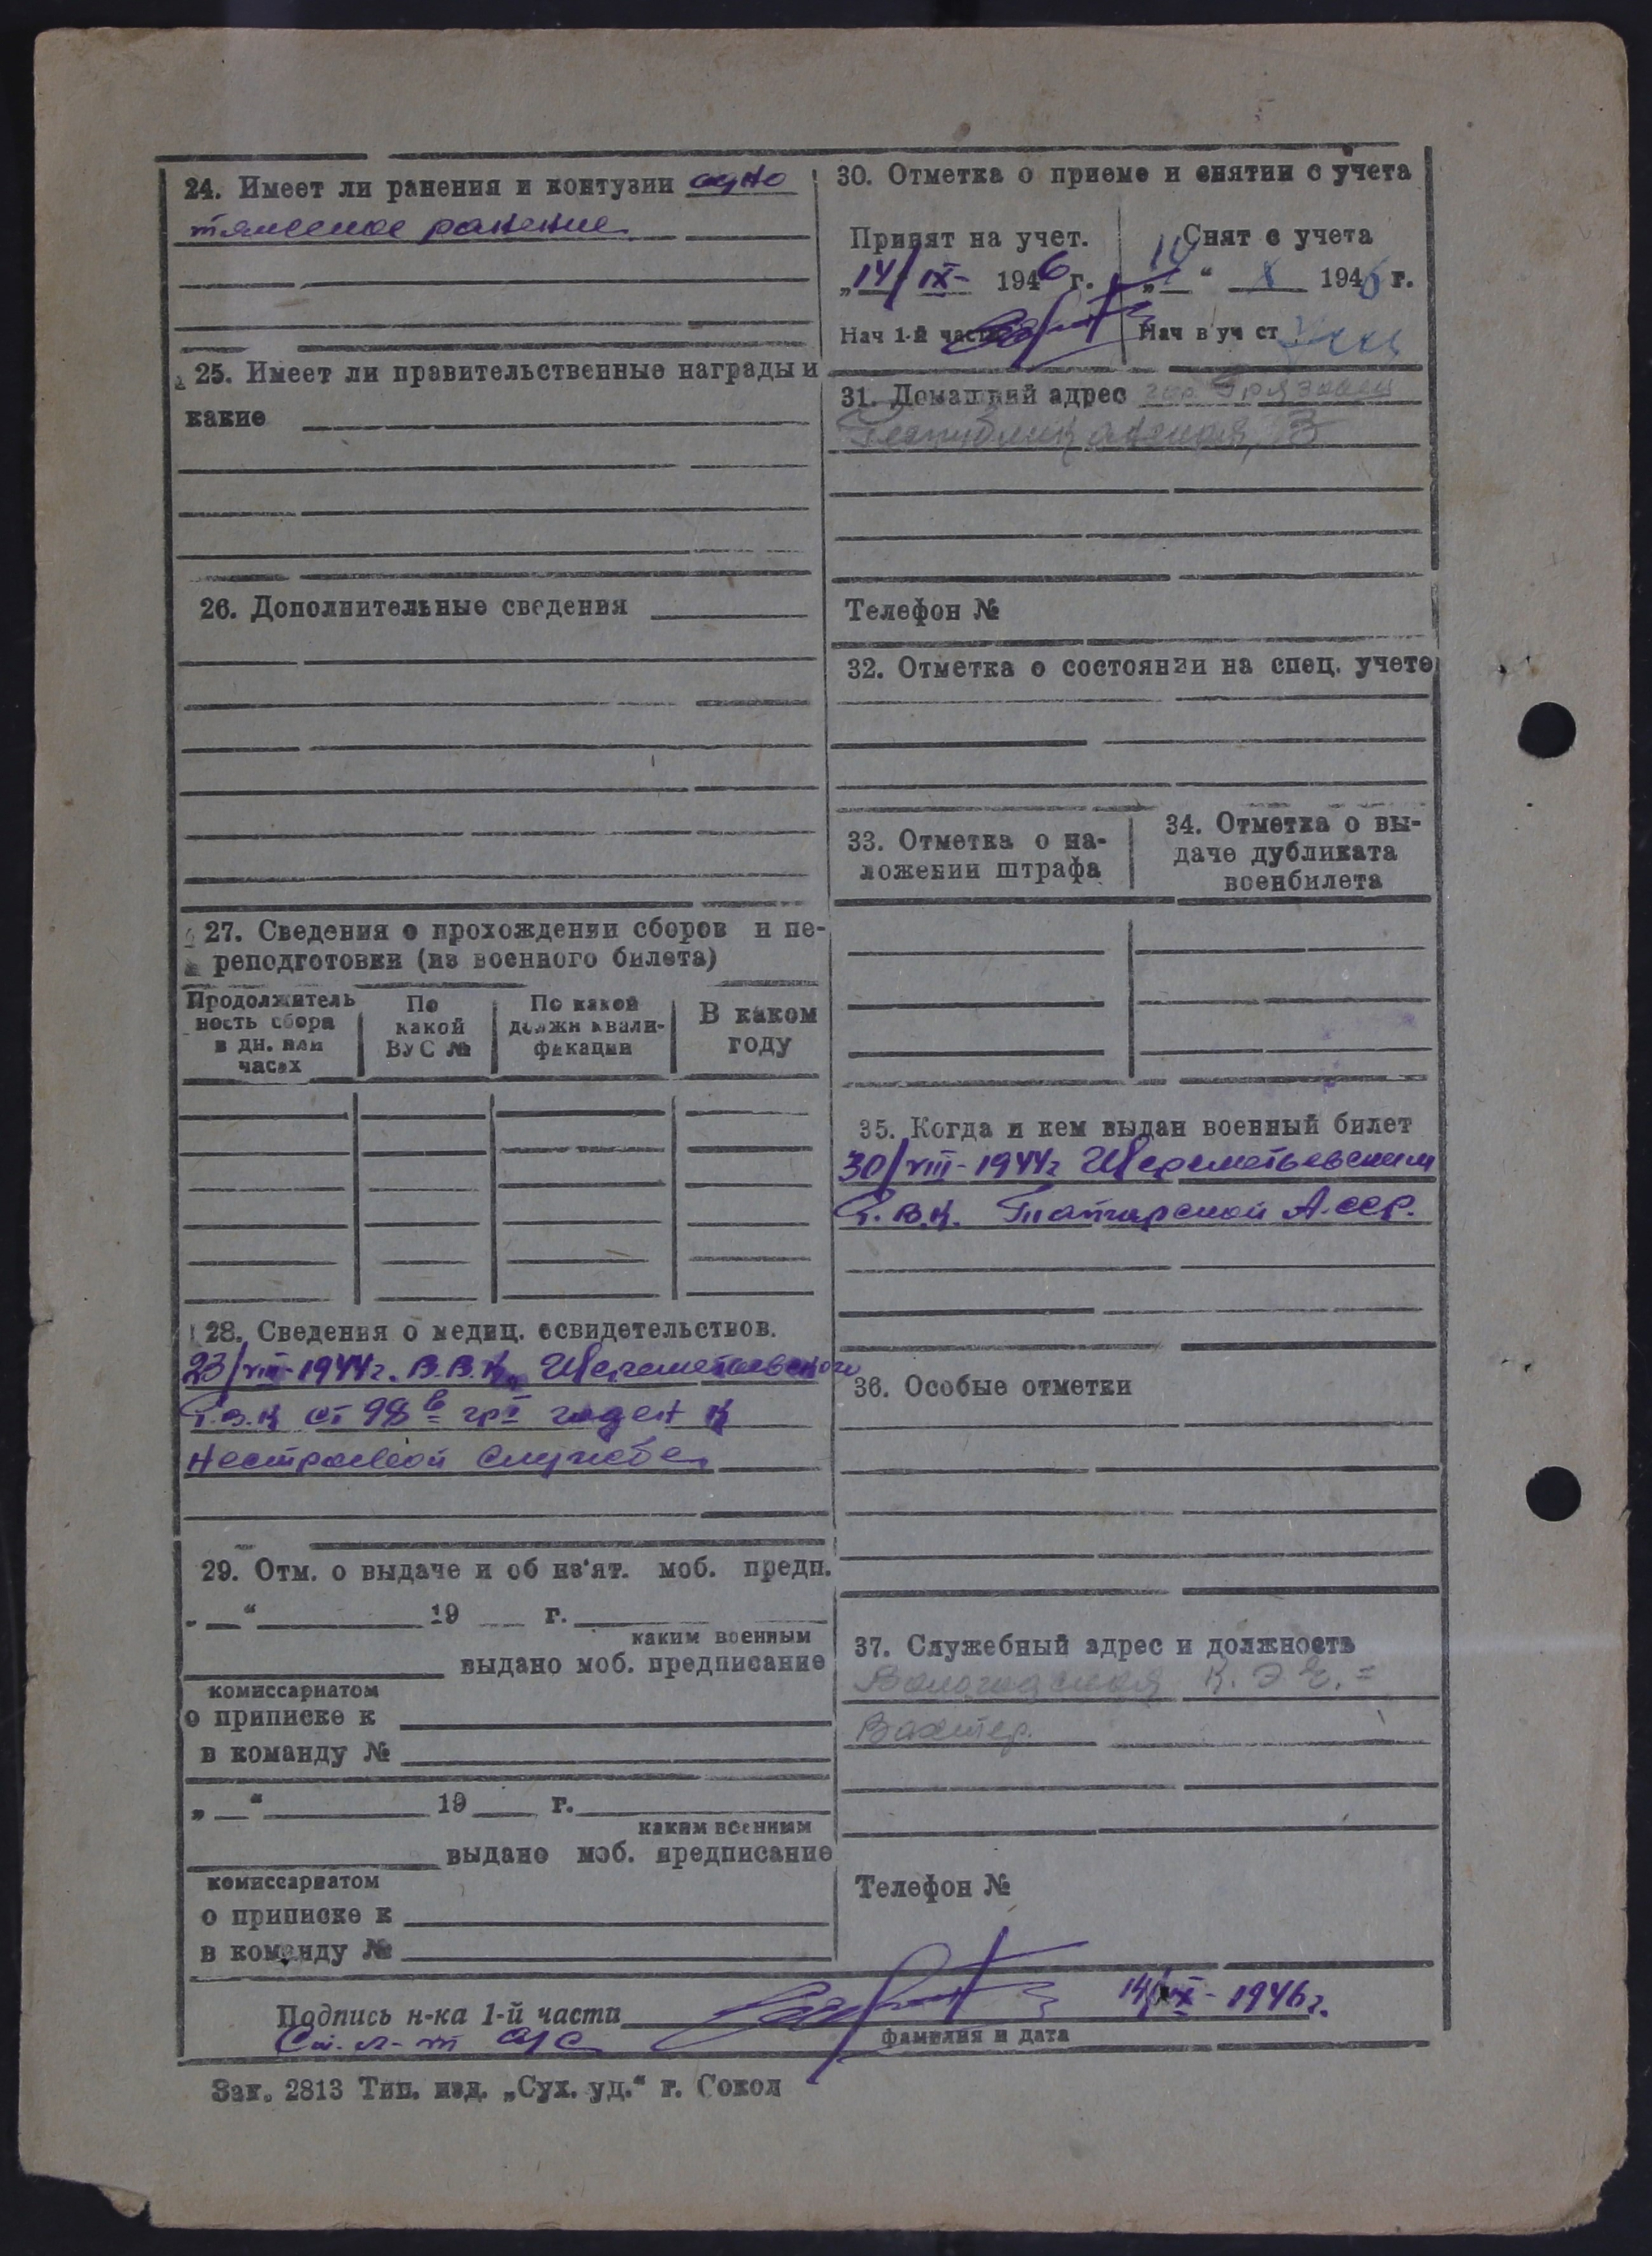 24. Имеет ли ранения и контузии одно
тяжелое ранение
25. Имеет ли правительственные награды и
какие
26. Дополнительные сведения
27. Сведения о прохождении сборов и пе-
реподготовки (из военного билета)
Продолжитель
ность сбора
в дн. или
часах
По
какой
ВУС №
По какой
должн квали-
фикации
В каком
году
28. Сведения о медиц. освидетельствов.
23/VIII-1944г. В.В.К. Шереметьевского
Р.В.К ст 98 в гр I годен к
нестроевой службе
29. Отм. о выдаче и об из'ят. моб. предп.
„ “ 19 г.
каким военным
выдано моб. предписание
комиссариатом
о приписке к
в команду №
„ “ 19 г.
каким военным
выдано моб. предписание
комиссариатом
о приписке к
в команду №
30. Отметка о приеме и снятии с учета
Принят на учет.
„14/IX- 1946 г.
Нач 1-й части
Снят с учета
“ X 1946 г.
Нач в уч ст
31. Домашний адрес гор. Грязовец
Республиканская,
Телефон №
32. Отметка о состоянии на спец. учете
33. Отметка о на-
ложении штрафа
34. Отметка о вы-
даче дубликата
военбилета
35. Когда и кем выдан военный билет
30/VIII-1944г Шереметьевским
Р.В.К. Татарской А.ССР.
36. Особые отметки
37. Служебный адрес и должность
Вологодская К.Э.Ч.=
Вахтер.
Телефон №
Подпись н-ка 1-й части 14/IX-1946г.
Ст. л-т а/с
фамилия и дата
Зак. 2813 Тип. изд. „Сух. уд.“ г. Сокол